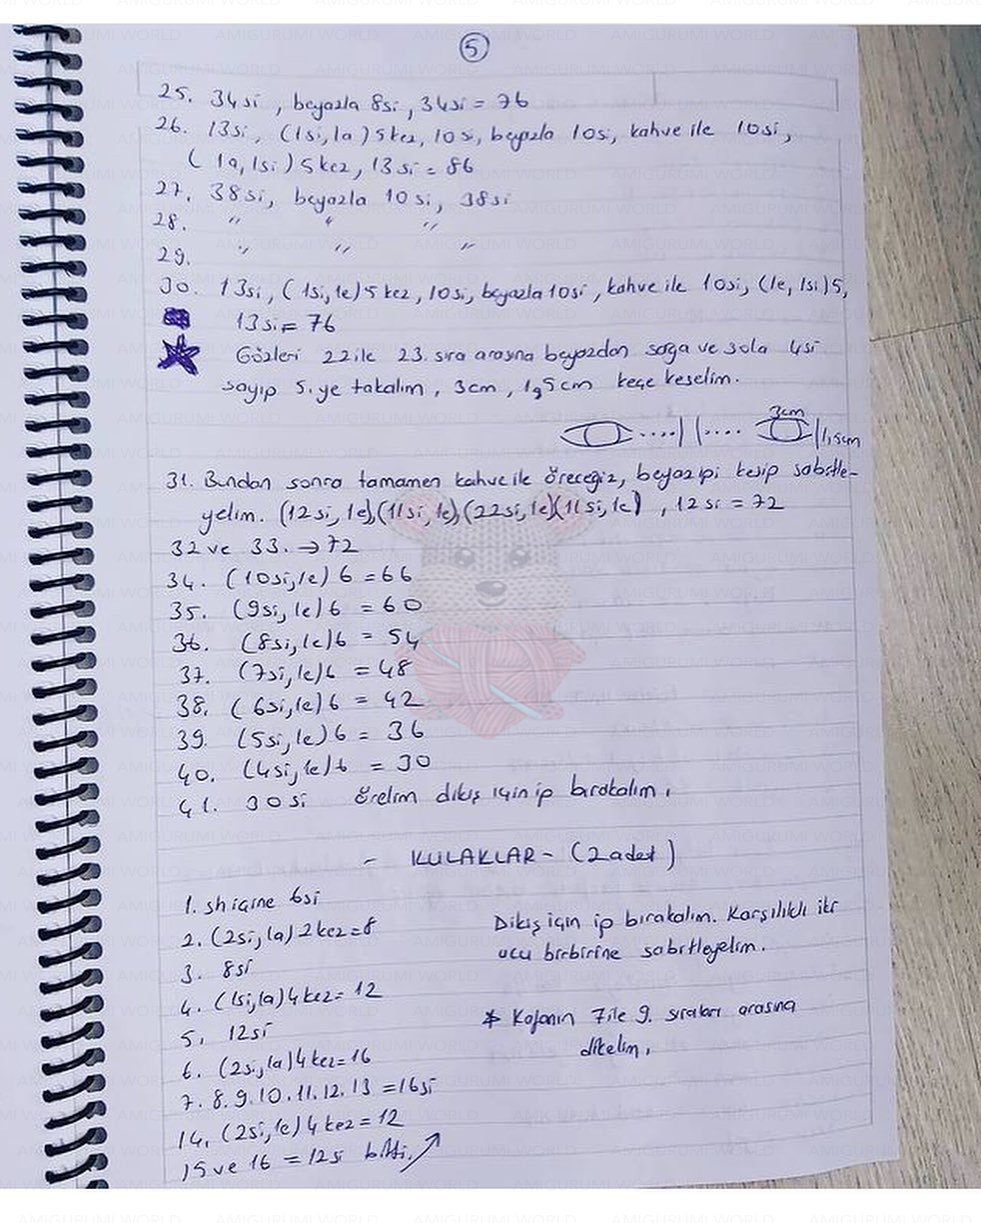 5
25. 34si, beyazla 8si, 34si = 76
26. 13si, (1si, 1a) 5kez, 10si, beyazla 10si, kahve ile 10si,
(1a, 1si) 5kez, 13si = 86
27. 38si, beyazla 10si, 38si
28. " " "
29. " " "
30. 13si, (1si, 1e) 5kez, 10si, beyazla 10si, kahve ile 10si, (1e, 1si)5,
13si = 76
Gözleri 22 ile 23. sıra arasına beyazdan sağa ve sola 4si
sayıp 5.ye takalım, 3cm, 1,5cm keçe keselim.
3cm
1,5cm
31. Bundan sonra tamamen kahve ile öreceğiz, beyaz ipi kesip sabitle-
yelim. (12si, 1e), (11si, 1e), (22si, 1e)(11si, 1e), 12si = 72
32 ve 33. → 72
34. (10si, 1e) 6 = 66
35. (9si, 1e) 6 = 60
36. (8si, 1e) 6 = 54
37. (7si, 1e) 6 = 48
38. (6si, 1e) 6 = 42
39. (5si, 1e) 6 = 36
40. (4si, 1e) 6 = 30
41. 30si örelim dikiş için ip bırakalım.
- KULAKLAR - (2 adet)
1. sh içine 6si
2. (2si, 1a) 2kez = 8
3. 8si
4. (1si, 1a) 4kez = 12
5. 12si
6. (2si, 1a) 4kez = 16
7. 8. 9. 10. 11. 12. 13 = 16si
14. (2si, 1e) 4kez = 12
15 ve 16 = 12si bitti.
Dikiş için ip bırakalım. Karşılıklı iki
ucu birbirine sabitleyelim.
* Kafanın 7 ile 9. sıraları arasına
dikelim.
AMIGURUMI WORLD